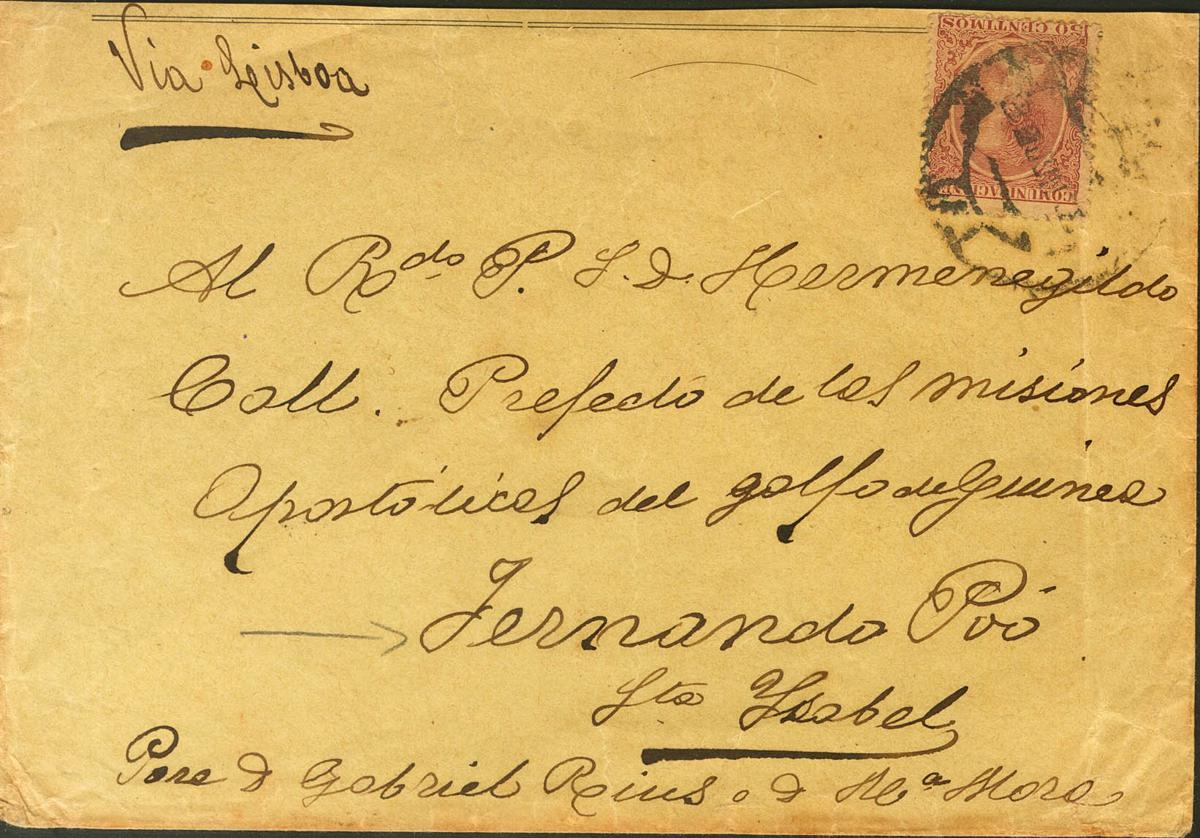 Via Lisboa
50 CENTIMOS
COMUNICACIONES
Al Rdo P. S. D. Hermenegildo
Coll. Prefecto de las misiones
Apostólicas del golfo de Guinea
Fernando Póo
Sta Ysabel
Para D Gabriel Rius o D Ma Mora